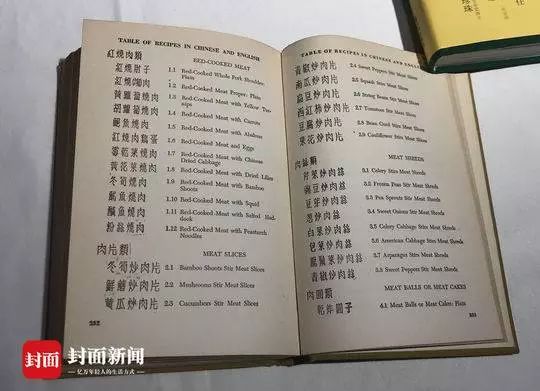 TABLE OF RECIPES IN CHINESE AND ENGLISH
紅燒肉類 RED-COOKED MEAT
紅燒肘子 1.1 Red-Cooked Whole Pork Shoulder: Plain
紅燒肉 1.2 Red-Cooked Meat Proper: Plain
黃蘿蔔燒肉 1.3 Red-Cooked Meat with Yellow Turnips
胡蘿蔔燒肉 1.4 Red-Cooked Meat with Carrots
鮑魚燒肉 1.5 Red-Cooked Meat with Abalone
紅燒肉雞蛋 1.6 Red-Cooked Meat and Eggs
霉乾菜燒肉 1.7 Red-Cooked Meat with Chinese Dried Cabbage
黃花菜燒肉 1.8 Red-Cooked Meat with Dried Lilies
冬筍燒肉 1.9 Red-Cooked Meat with Bamboo Shoots
魷魚燒肉 1.10 Red-Cooked Meat with Squid
鹹魚燒肉 1.11 Red-Cooked Meat with Salted Haddock
粉絲燒肉 1.12 Red-Cooked Meat with Peastarch Noodles
肉片類 MEAT SLICES
冬筍炒肉片 2.1 Bamboo Shoots Stir Meat Slices
鮮蘑炒肉片 2.2 Mushrooms Stir Meat Slices
黃瓜炒肉片 2.3 Cucumbers Stir Meat Slices
232
TABLE OF RECIPES IN CHINESE AND
青椒炒肉片 2.4 Sweet Peppers Stir Meat Slices
南瓜炒肉片 2.5 Squash Stirs Meat Slices
扁豆炒肉片 2.6 String Beans Stir Meat Slices
西紅柿炒肉片 2.7 Tomatoes Stir Meat Slices
豆腐炒肉片 2.8 Bean Curd Stirs Meat Slices
菜花炒肉片 2.9 Cauliflower Stirs Meat Slices
肉絲類 MEAT SHREDS
芹菜炒肉絲 3.1 Celery Stirs Meat Shreds
豌豆炒肉絲 3.2 Frozen Peas Stir Meat Shreds
豆芽炒肉絲 3.3 Pea Sprouts Stir Meat Shreds
葱炒肉絲 3.4 Sweet Onions Stir Meat Shreds
白菜炒肉絲 3.5 Celery Cabbage Stirs Meat Shreds
包菜炒肉絲 3.6 American Cabbage Stirs Meat Shreds
炒肉絲 3.7 Asparagus Stirs Meat Shreds
青椒炒肉絲 3.8 Sweet Peppers Stir Meat Shreds
肉圓類 MEAT BALLS OR MEAT CAKES
乾炸圓子 4.1 Meat Balls or Meat Cakes: Plain
233
珍珠
封面 封面新闻
亿万年轻人的生活方式